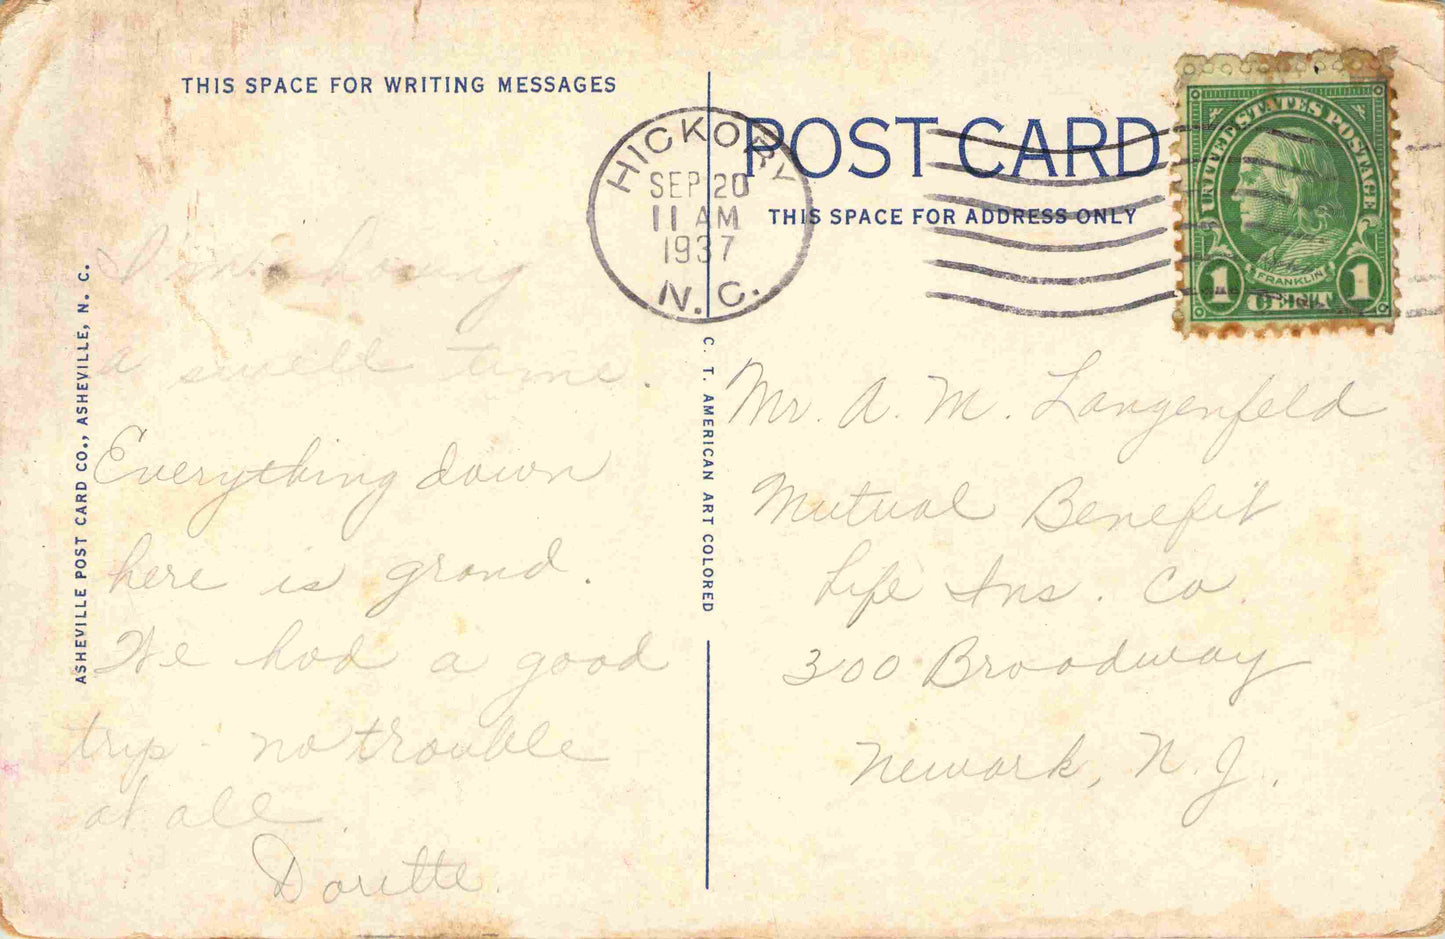 THIS SPACE FOR WRITING MESSAGES
I'm having
a swell time.
Everything down
here is grand.
We had a good
trip - no trouble
at all.
Doritte
ASHEVILLE POST CARD CO., ASHEVILLE, N. C.
C. T. AMERICAN ART COLORED
HICKORY
SEP 20
11 AM
1937
N.C.
POST CARD
THIS SPACE FOR ADDRESS ONLY
UNITED STATES POSTAGE
FRANKLIN
1 CENT 1
Mr. A. M. Langenfeld
Mutual Benefit
Life Ins. Co.
300 Broadway
Newark, N. J.